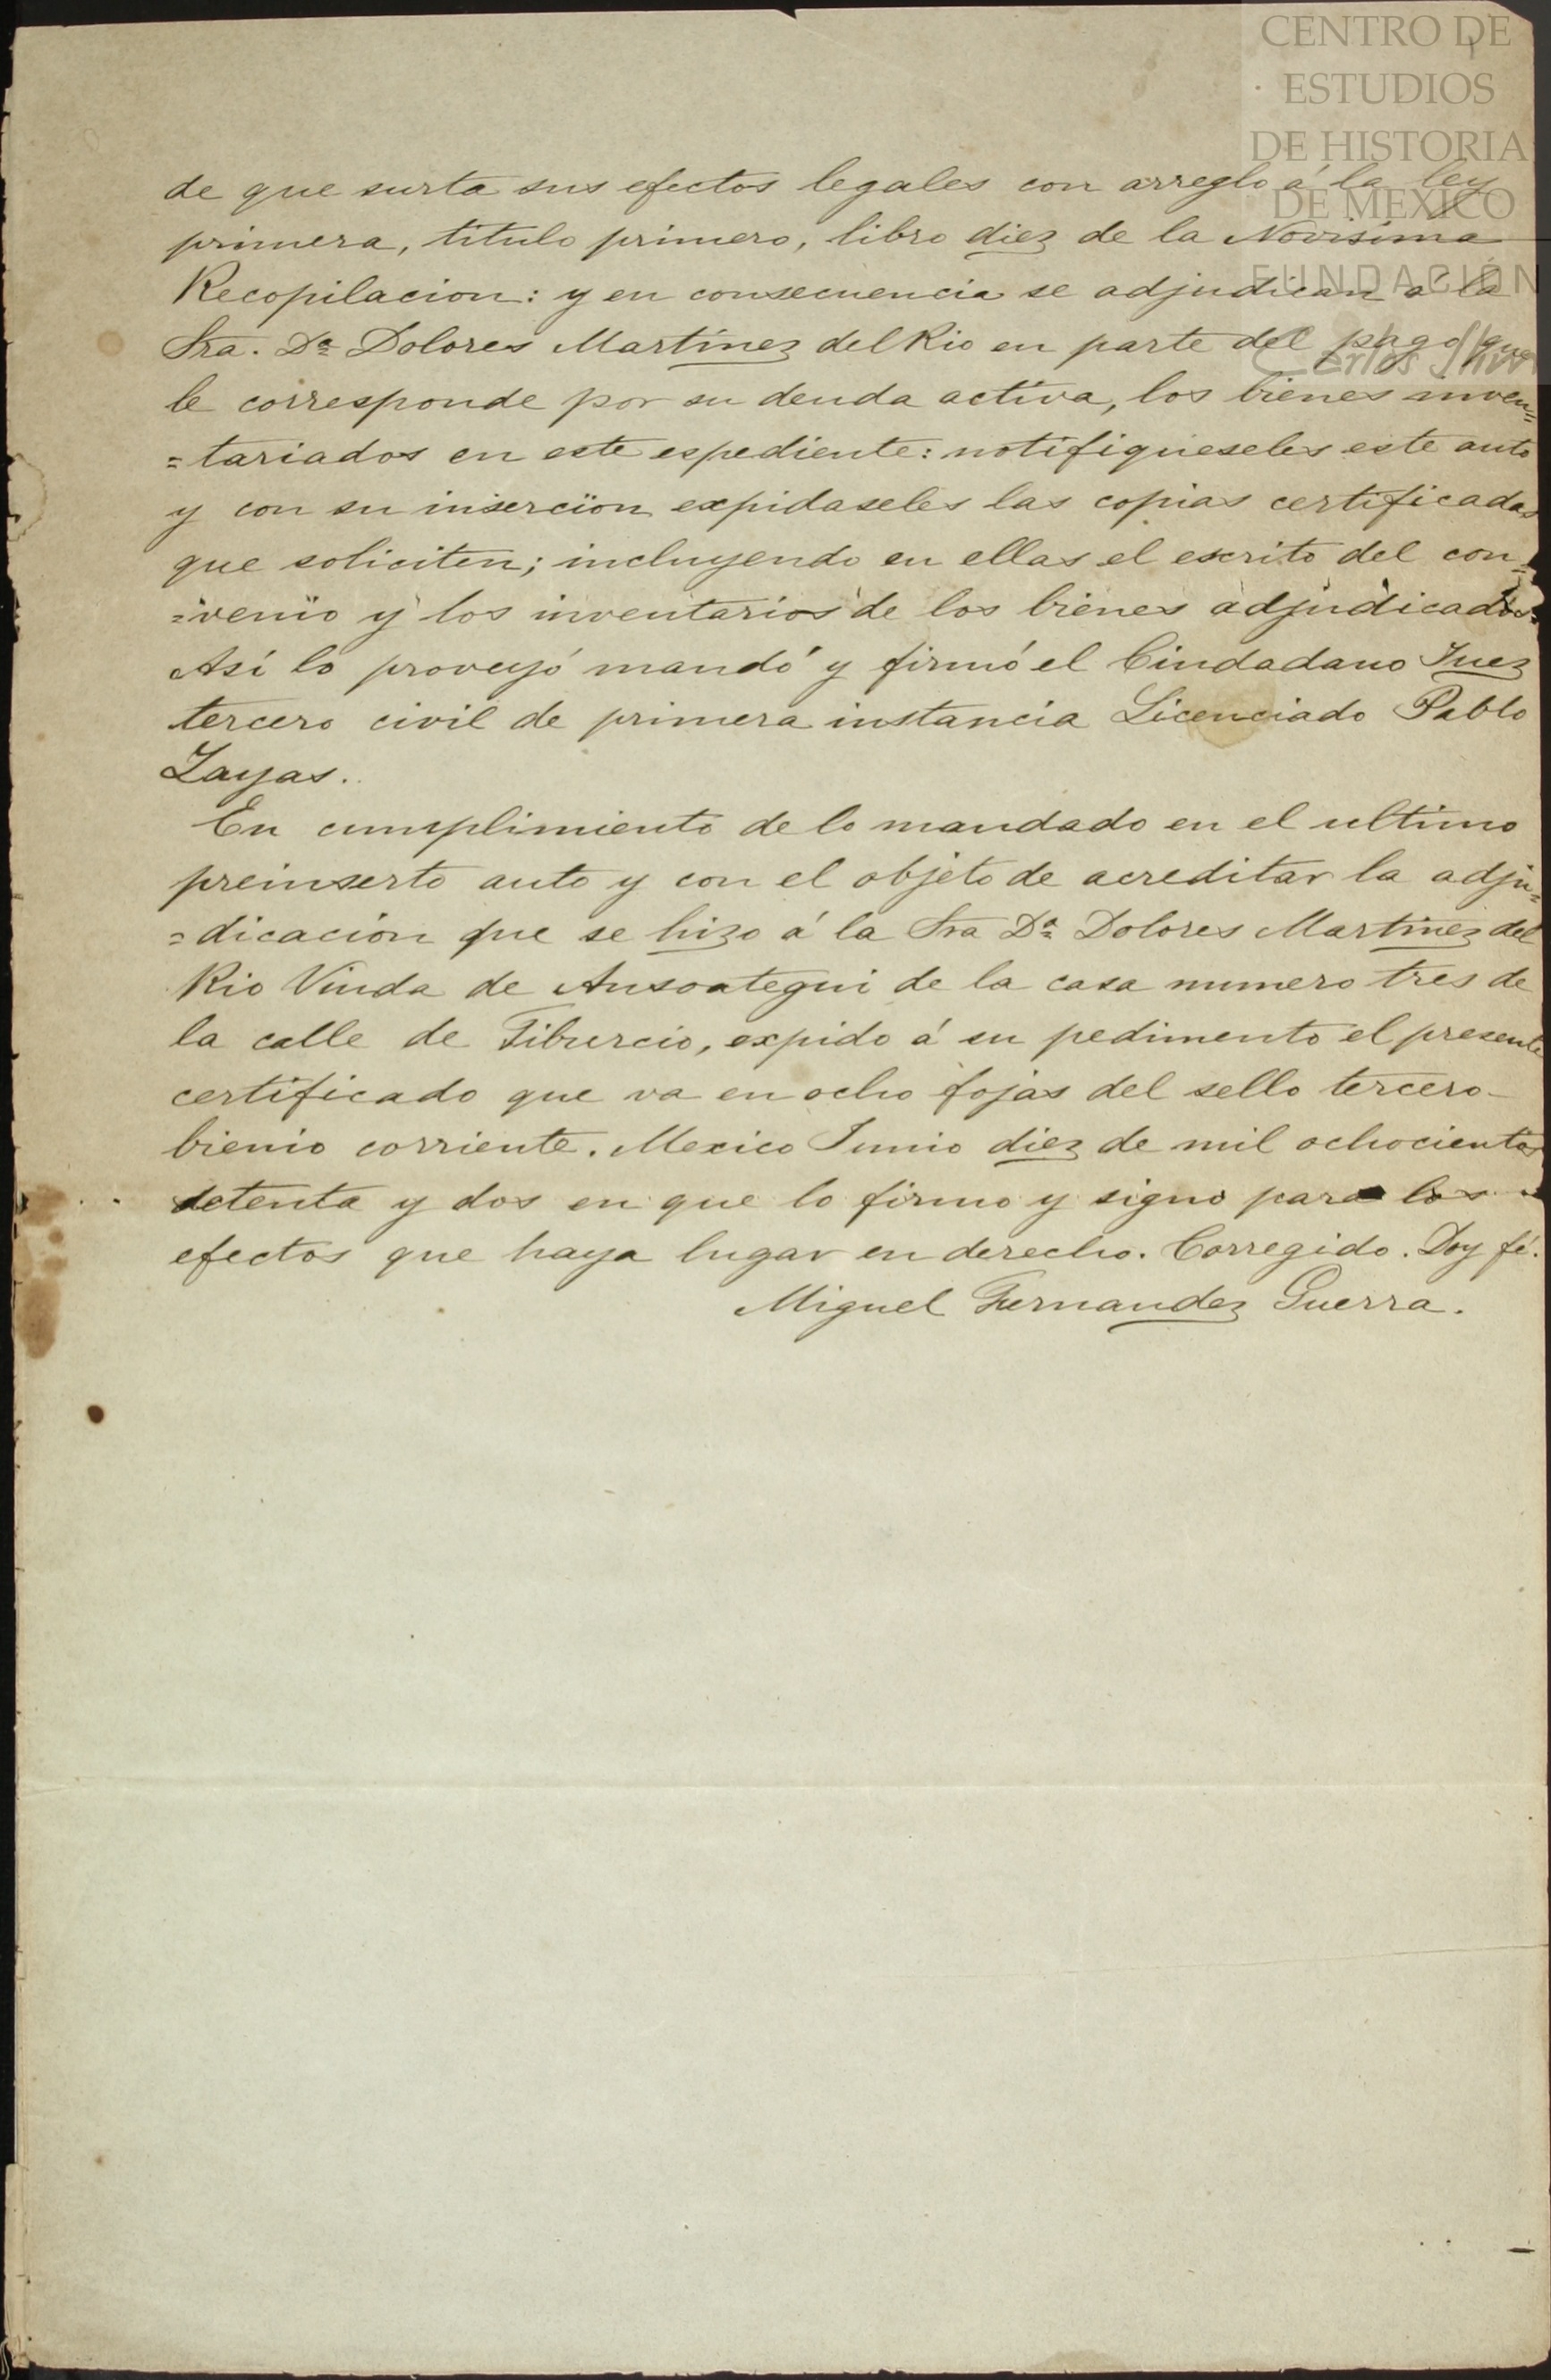 CENTRO DE
ESTUDIOS
DE HISTORIA
DE MEXICO
FUNDACIÓN
Carlos Slim
de que surta sus efectos legales con arreglo á la ley
primera, titulo primero, libro diez de la Novisima
Recopilacion: y en consecuencia se adjudican á la
Sra. Dª Dolores Martínez del Rio en parte del pago que
le corresponde por su deuda activa, los bienes inven=
=tariados en este espediente: notifiqueseles este auto
y con su insercion expidaseles las copias certificadas
que soliciten; incluyendo en ellas el escrito del con=
=venio y los inventarios de los bienes adjudicados.
Así lo proveyó mandó y firmó el Ciudadano Juez
tercero civil de primera instancia Licenciado Pablo
Zayas.
En cumplimiento de lo mandado en el ultimo
preinserto auto y con el objeto de acreditar la adju=
=dicación que se hizo á la Sra Dª Dolores Martinez del
Rio Viuda de Ansoategui de la casa numero tres de
la calle de Tiburcio, expido á su pedimento el presente
certificado que va en ocho fojas del sello tercero
bienio corriente. Mexico Junio diez de mil ochocientos
setenta y dos en que lo firmo y signo para los
efectos que haya lugar en derecho. Corregido. Doy fé.
Miguel Fernandez Guerra.